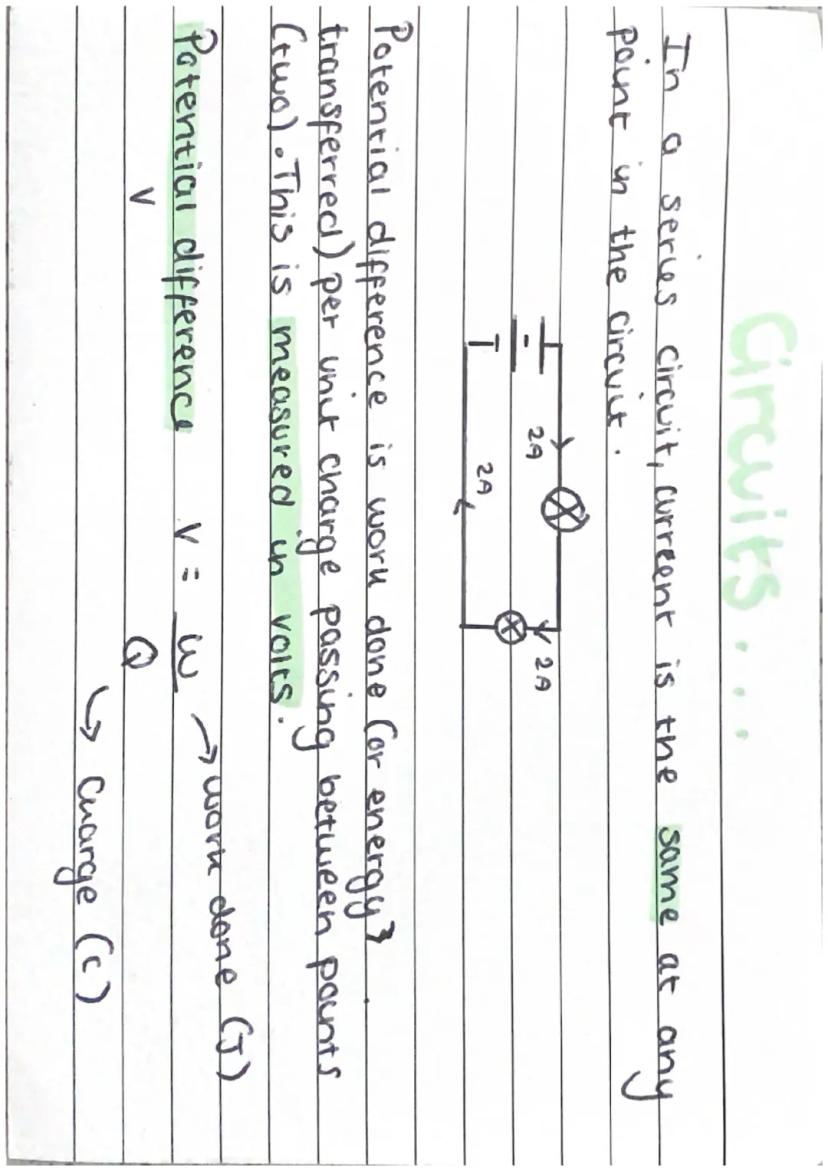 Circuits...
In a series circuit, current is the same at any
point in the circuit.
2A
2A
2A
Potential difference is work done (or energy
transferred) per unit charge passing between points
(two). This is measured in volts.
Potential difference V = W → work done (J)
V Q
→ Charge (C)